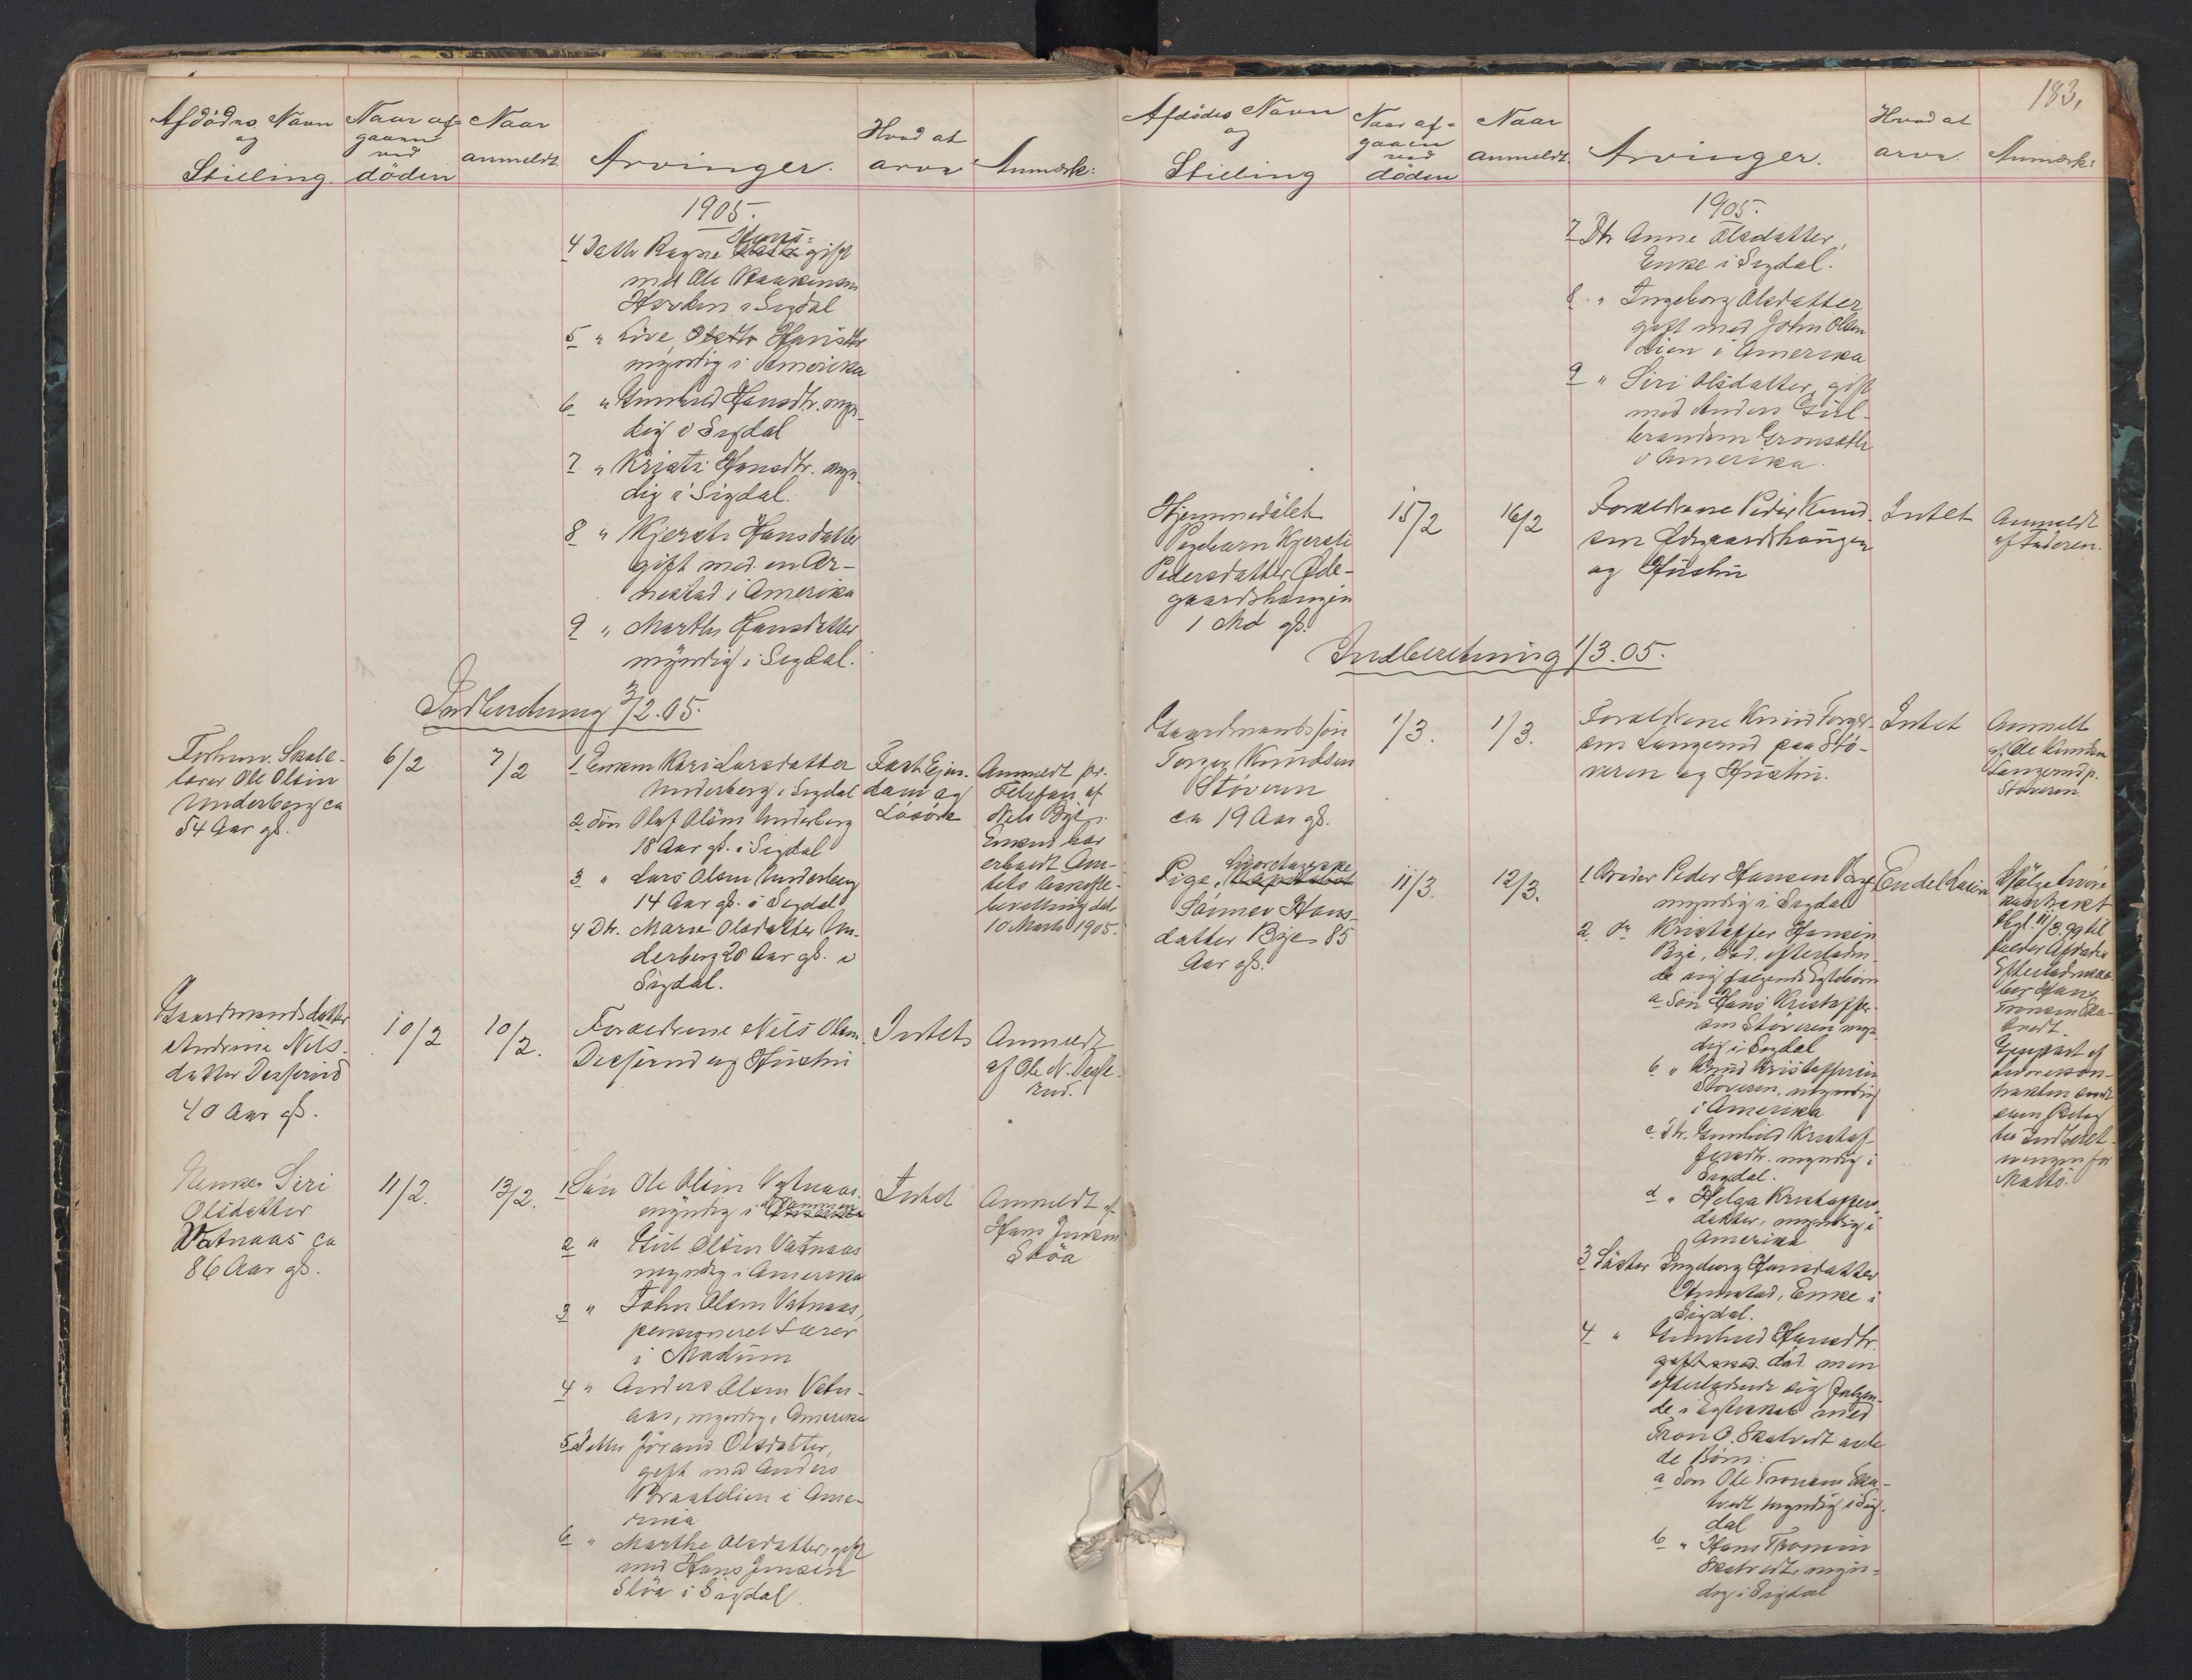 Afdødes Navn
og
Stilling.
Naar af-
gaaen
ved
döden
Naar
anmeldt.
Arvinger.
Hvad at
arve
Anmærk:
1905.
4 Datter Ragne Hans-
gift
med Ole Haakensen
i Sigdal
5 " Live Hansdtr
myndig i Amerika
6 " Gunhild Hansdtr. myn-
dig i Sigdal
7 " Kristi Hansdtr. myn-
dig i Sigdal.
8 " Kjersti Hansdatter
gift med en Ar-
nestad i Amerika
9 " Marthe Hansdatter
myndig i Sigdal.
Indberetning 3/2.05.
Forhenv. Skole-
lærer Ole Olsen
Underberg ca
54 Aar gl.
6/2
7/2
1 Enken Kari Larsdatter
Underberg i Sigdal
2 Søn Olaf Olsen Underberg
18 Aar gl. i Sigdal
3 " Lars Olsen Underberg
14 Aar gl. i Sigdal
4 Dtr. Marie Olsdatter Un-
derberg 20 Aar gl. i
Sigdal.
Fast Ejen-
dom og
Løsøre
Anmeldt pr.
Telefon af
Nils Bye.
Enken har
erholdt Am-
tets uskifte-
bevilling dat.
10 Marts 1905.
Gaardmandsdatter
Andrine Nils-
datter
40 Aar gl.
10/2
10/2.
Forældrene Nils Olsen
og Hustru
Intet
Anmeldt
af Ole N.
rud.
Enken Siri
Olsdatter
Vatnaas ca
86 Aar gl.
11/2.
13/2.
1 Søn Ole Olsen Vatnaas
myndig i Drammen
2 " Gul Olsen Vatnaas
myndig i Amerika
3 " John Olsen Vatnaas,
pensioneret Lærer
i Modum
4 " Anders Olsen Vatn-
aas, myndig i Amerika
5 Datter Jørand Olsdatter,
gift med Anders
Braatelien i Ame-
rika
6 " Marthe Olsdatter, gift
med Hans Jensen
Støa i Sigdal.
Intet
Anmeldt af
Hans Jensen
Støa
183.
Afdødes Navn
og
Stilling
Naar af-
gaaen
ved
döden
Naar
anmeldt.
Arvinger.
Hvad at
arve.
Anmærk:
1905.
7 Dtr Anne Olsdatter,
Enke i Sigdal.
8 " Ingeborg Olsdatter
gift med John Olsen
Lien i Amerika
9 " Siri Olsdatter, gift
med Anders Gul-
brandsen Grønsæth
i Amerika.
Hjemmedøbt
Pigebarn Kjersti
Pedersdatter Øde-
gaardshaugen
1 Md gl.
15/2
16/2
Forældrene Peder Knud-
sen Ødegaardshaugen
og Hustru
Intet
Anmeldt
af Faderen.
Indberetning 1/3.05.
Gaardmandssøn
Torger Knudsen
Støveren
ca 19 Aar gl.
1/3.
1/3.
Forældrene Knud Torger-
sen Langerud paa Stø-
veren og Hustru.
Intet
Anmelt
af Ole Knudsen
Langerud p.
Støveren
Pige,
Hans-
datter Bye 85
Aar gl.
11/3.
12/3.
1 Broder Peder Hansen Bye
myndig i Sigdal
2 do Kristoffer Hansen
Bye, død, efterladen-
de sig følgende Egtebørn
a Søn Hans Kristoffer-
sen Støveren myn-
dig i Sigdal
b " Knud Kristoffersen
Støveren, myndig
i Amerika
c Dtr. Gunhild Kristof-
fersdtr. myndig i
Sigdal.
d " Helga Kristoffers-
datter, myndig i
Amerika
3 Søster Ingeborg Hansdatter
Enke i
Sigdal.
4 " Gunhild Hansdtr.
død men
efterladende sig følgen-
de i Egteskab med
Tron O. Skatvedt avle-
de Børn:
a Søn Ole Tronsen Ska-
tvedt myndig i Sig-
dal
b " Hans Tronsen
Skatvedt, myn-
dig i Sigdal
En del Løsøre
Ifølge Livøre-
kontrakt
tkgl. 11/3.99 til-
falder Afdødes
Efterladenska-
ber Hans
Tronsen Ska-
tvedt.
Gjenpart af
kon-
trakten sendt
som Bilag
til Indberet-
ningen for
Marts.